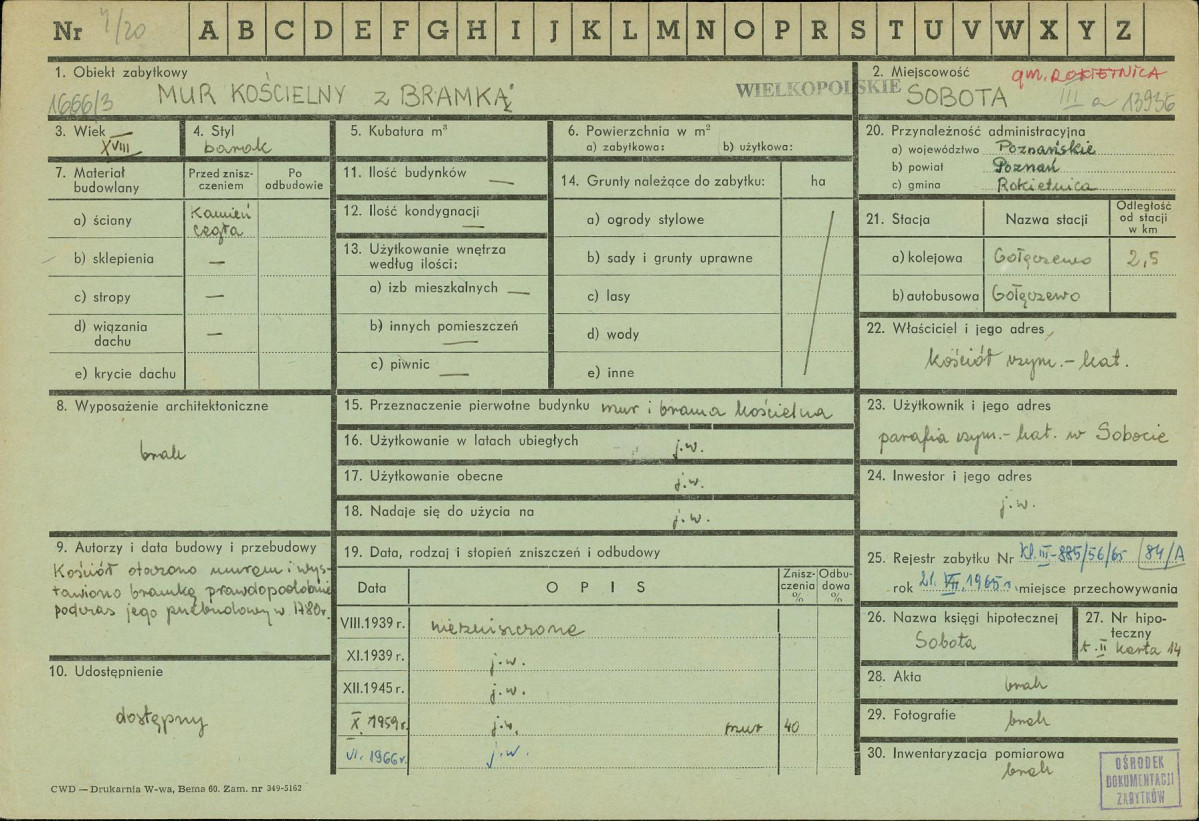 Nr 4/20 A B C D E F G H I J K L M N O P R S T U V W X Y Z
1. Obiekt zabytkowy
1666/3 MUR KOŚCIELNY z BRAMKĄ
WIELKOPOLSKIE
2. Miejscowość gm. ROKIETNICA
SOBOTA III a 13936
3. Wiek
XVIII
4. Styl
barok
5. Kubatura m³
6. Powierzchnia w m²
a) zabytkowa: b) użytkowa:
7. Materiał budowlany
Przed zniszczeniem
Po odbudowie
a) ściany Kamień
cegła
b) sklepienia —
c) stropy —
d) wiązania dachu —
e) krycie dachu
8. Wyposażenie architektoniczne
brak
9. Autorzy i data budowy i przebudowy
Kościół otoczono murem i wys-
tawiono bramkę prawdopodobnie
podczas jego przebudowy w 1780r.
10. Udostępnienie
dostępny
11. Ilość budynków —
12. Ilość kondygnacji
—
13. Użytkowanie wnętrza
według ilości:
a) izb mieszkalnych —
b) innych pomieszczeń
—
c) piwnic —
14. Grunty należące do zabytku: ha
a) ogrody stylowe
b) sady i grunty uprawne
c) lasy
d) wody
e) inne
15. Przeznaczenie pierwotne budynku mur i brama kościelna
16. Użytkowanie w latach ubiegłych j.w.
17. Użytkowanie obecne j.w.
18. Nadaje się do użycia na j.w.
19. Data, rodzaj i stopień zniszczeń i odbudowy
Data O P I S Zniszczenia % Odbudowa %
VIII.1939 r. niezniszczone
XI.1939 r. j.w.
XII.1945 r. j.w.
X. 1959 r. j.w. mur 40
VI. 1966 r. j.w.
20. Przynależność administracyjna
a) województwo Poznańskie
b) powiat Poznań
c) gmina Rokietnica
21. Stacja Nazwa stacji Odległość od stacji w km
a) kolejowa Gołęczewo 2,5
b) autobusowa Gołęczewo
22. Właściciel i jego adres
kościół rzym.-kat.
23. Użytkownik i jego adres
parafia rzym.-kat. w Sobocie
24. Inwestor i jego adres
j.w.
25. Rejestr zabytku Nr kl.III-885/56/65 84/A
rok 21. VII. 1965 r. miejsce przechowywania
26. Nazwa księgi hipotecznej
Sobota
27. Nr hipoteczny
t. II karta 14
28. Akta
brak
29. Fotografie
brak
30. Inwentaryzacja pomiarowa
brak
OŚRODEK
DOKUMENTACJI
ZABYTKÓW
CWD — Drukarnia W-wa, Bema 60. Zam. nr 349-5162